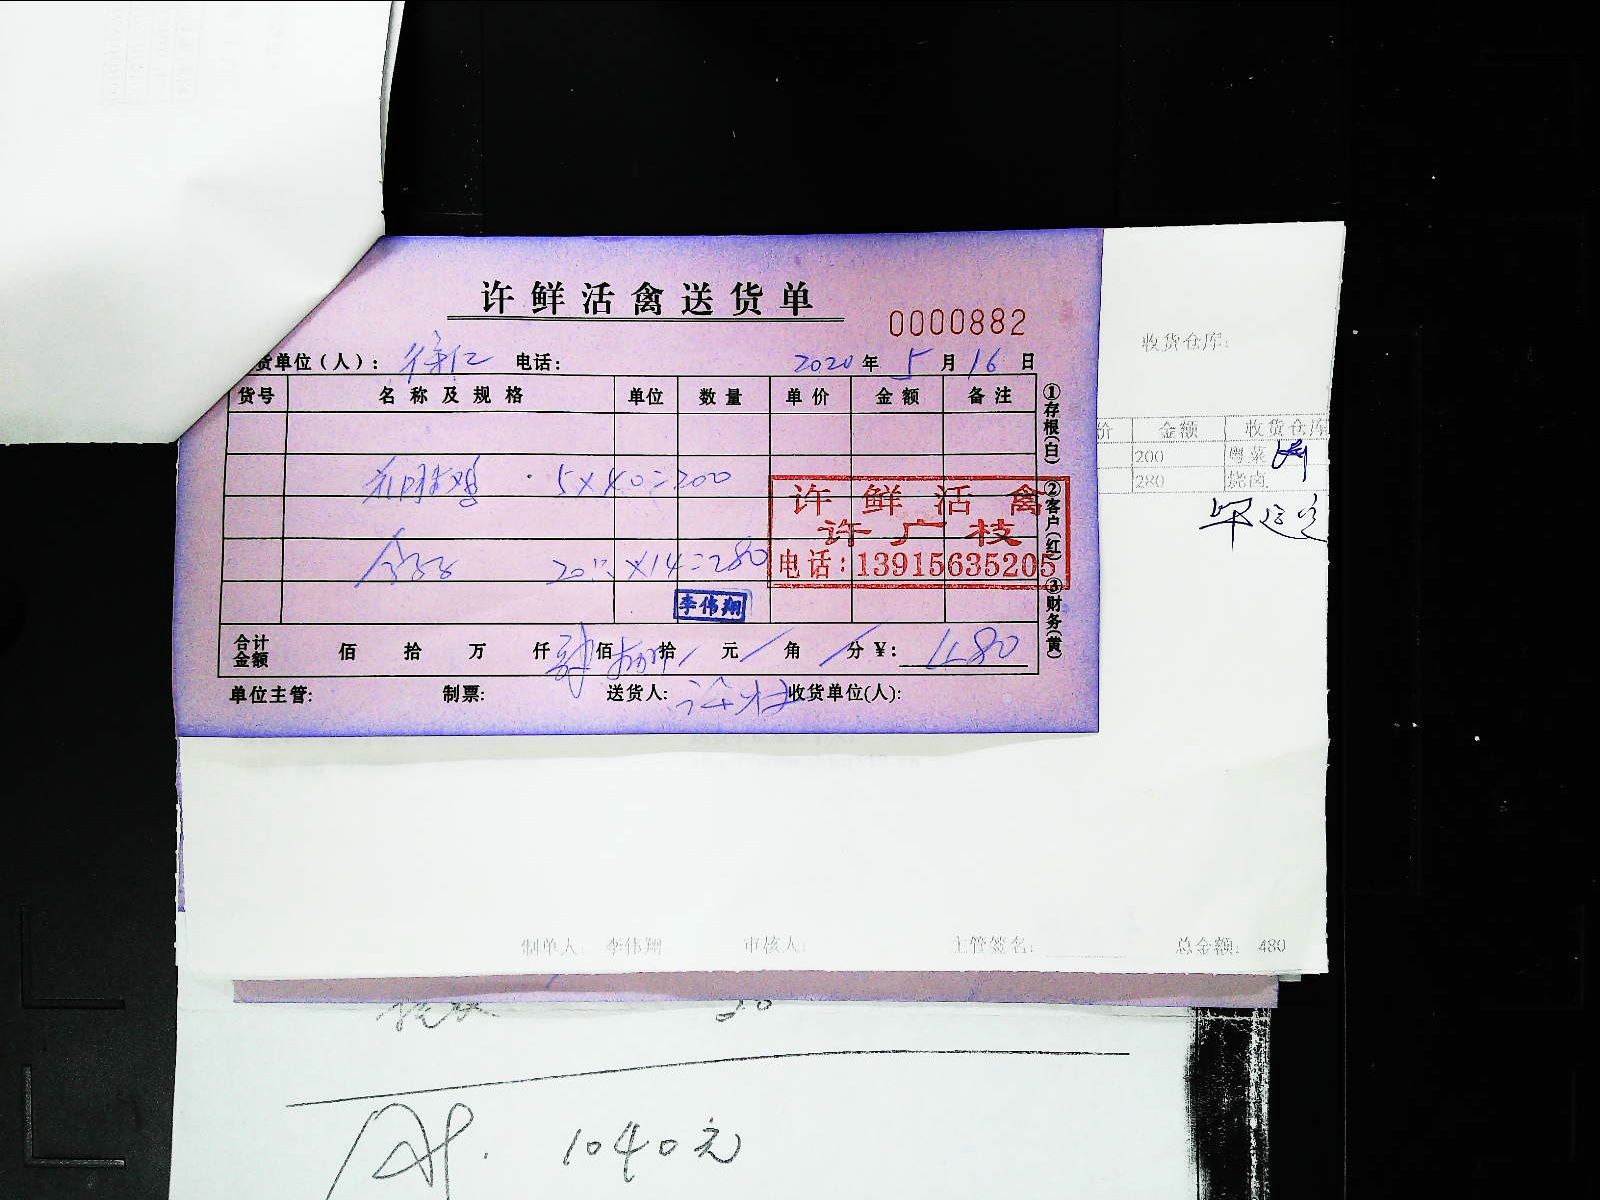 许鲜活禽送货单
0000882
货单位（人）： 徐仁 电话：
2020 年 5 月 16 日
货号 名称及规格 单位 数量 单价 金额 备注
鸡 5×40=200
20 ×14=280
许鲜活禽
许广枝
电话：13915635205
李伟翔
合计金额 佰 拾 万 仟 肆 佰 捌 拾 元 角 分 ¥： 480
单位主管： 制票： 送货人： 许枝 收货单位(人)：
①存根(白) ②客户(红) ③财务(黄)
收货仓库：
价 金额 收货仓库
200 粤菜
280 烧卤
制单人： 李伟翔 审核人： 主管签名： 总金额： 480
20
1040元